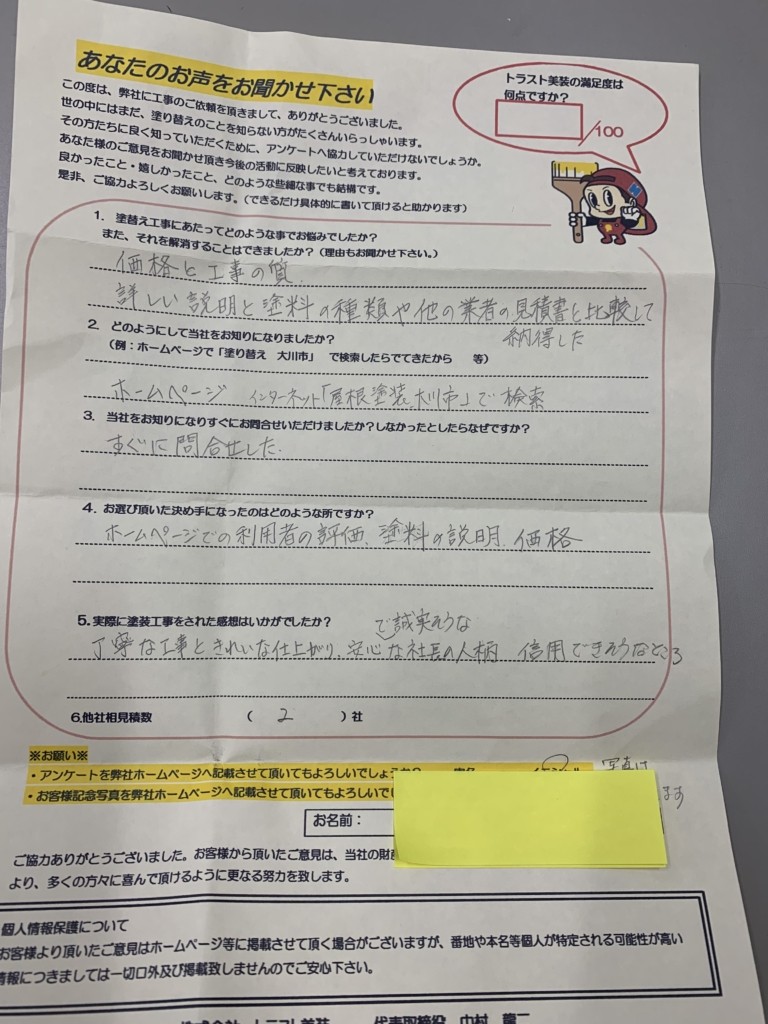 あなたのお声をお聞かせ下さい
トラスト美装の満足度は
何点ですか?
/100
この度は、弊社に工事のご依頼を頂きまして、ありがとうございました。
世の中にはまだ、塗り替えのことを知らない方がたくさんいらっしゃいます。
その方たちに良く知っていただくために、アンケートへ協力していただけないでしょうか。
あなた様のご意見をお聞かせ頂き今後の活動に反映したいと考えております。
良かったこと・嬉しかったこと、どのような些細な事でも結構です。
是非、ご協力よろしくお願いします。(できるだけ具体的に書いて頂けると助かります)
1. 塗替え工事にあたってどのような事でお悩みでしたか?
また、それを解消することはできましたか?(理由もお聞かせ下さい。)
価格と工事の質.
詳しい説明と塗料の種類や他の業者の見積書と比較して
納得した
2. どのようにして当社をお知りになりましたか?
(例:ホームページで「塗り替え 大川市」 で検索したらでてきたから 等)
ホームページ インターネット「屋根塗装大川市」で検索
3. 当社をお知りになりすぐにお問合せいただけましたか?しなかったとしたらなぜですか?
すぐに問合せした.
4. お選び頂いた決め手になったのはどのような所ですか?
ホームページでの利用者の評価、塗料の説明、価格
5.実際に塗装工事をされた感想はいかがでしたか?
で誠実そうな
丁寧な工事ときれいな仕上がり、安心な社長の人柄 信用できそうなところ
6.他社相見積数 ( 2 )社
※お願い※
・アンケートを弊社ホームページへ記載させて頂いてもよろしいでしょうか?
写真は
・お客様記念写真を弊社ホームページへ記載させて頂いてもよろしいでし
ます
お名前:
ご協力ありがとうございました。お客様から頂いたご意見は、当社の財
より、多くの方々に喜んで頂けるように更なる努力を致します。
個人情報保護について
お客様より頂いたご意見はホームページ等に掲載させて頂く場合がございますが、番地や本名等個人が特定される可能性が高い
情報につきましては一切口外及び掲載致しませんのでご安心下さい。
株式会社 トラスト美装 代表取締役 中村 龍二